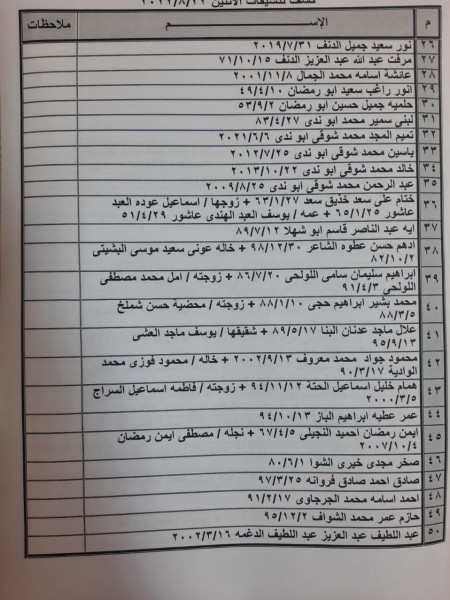 كشف تنسيقات الاثنين ٢٠٢٢/٨/٢٢
م الإســـم ملاحظات
٢٦ نور سعيد جميل الدنف ٢٠١٩/٧/٣١
٢٧ مرفت عبد الله عبد العزيز الدنف ٧١/١٠/١٥
٢٨ عائشة اسامه محمد الجمال ٢٠٠١/١١/٨
٢٩ انور راغب سعيد ابو رمضان ٤٩/٤/١٠
٣٠ حلميه جميل حسين ابو رمضان ٥٣/٩/٢
٣١ لبنى سمير محمد ابو ندى ٨٣/٤/٢٧
٣٢ تميم المجد محمد شوقى ابو ندى ٢٠٢١/٦/٦
٣٣ ياسين محمد شوقى ابو ندى ٢٠١٢/٧/٢٥
٣٤ خالد محمد شوقى ابو ندى ٢٠١٣/١٠/٢٢
٣٥ عبد الرحمن محمد شوقى ابو ندى ٢٠٠٩/٨/٢٥
٣٦ ختام على سعد خذيق سعد ٦٣/١/٢٧ + زوجها / اسماعيل عوده العبد
عاشور ٦٥/١/٢٥ + عمه / يوسف العبد الهندى عاشور ٥١/٤/٢٩
٣٧ ايه عبد الناصر قاسم ابو شهلا ٨٩/٧/١٢
٣٨ ادهم حسن عطوه الشاعر ٩٨/١٢/٣٠ + خاله عونى سعيد موسى البشيتى
٨٢/١٠/٢
٣٩ ابراهيم سليمان سامى اللولحى ٨٦/٧/٢٠ + زوجته / امل محمد مصطفى
اللولحى ٩١/٤/٣
٤٠ محمد بشير ابراهيم حجى ٨٨/١/١٠ + زوجته / محضية حسن شملخ
٨٨/٣/٥
٤١ علال ماجد عدنان البنا ٨٩/٥/١٧ + شقيقها / يوسف ماجد العشى
٩٥/٩/١٣
٤٢ محمود جواد محمد معروف ٢٠٠٢/٩/١٣ + خاله / محمود فوزى محمد
الوادية ٩٠/٣/١٧
٤٣ همام خليل اسماعيل الحتة ٩٤/١١/١٢ + زوجته / فاطمه اسماعيل السراج
٢٠٠٠/٣/٥
٤٤ عمر عطيه ابراهيم الباز ٩٤/١٠/١٣
٤٥ ايمن رمضان احميد النجيلى ٦٧/٤/٥ + نجله / مصطفى ايمن رمضان
٢٠٠٧/١٠/٤
٤٦ صخر مجدى خيرى الشوا ٨٠/٦/١
٤٧ صادق احمد صادق فروانه ٩٧/٣/٢٥
٤٨ احمد اسامه محمد الجرجاوى ٩١/٢/١٧
٤٩ حازم عمر محمد الشواف ٩٥/١٢/٢
٥٠ عبد اللطيف عبد العزيز عبد اللطيف الدغمه ٢٠٠٢/٣/١٦